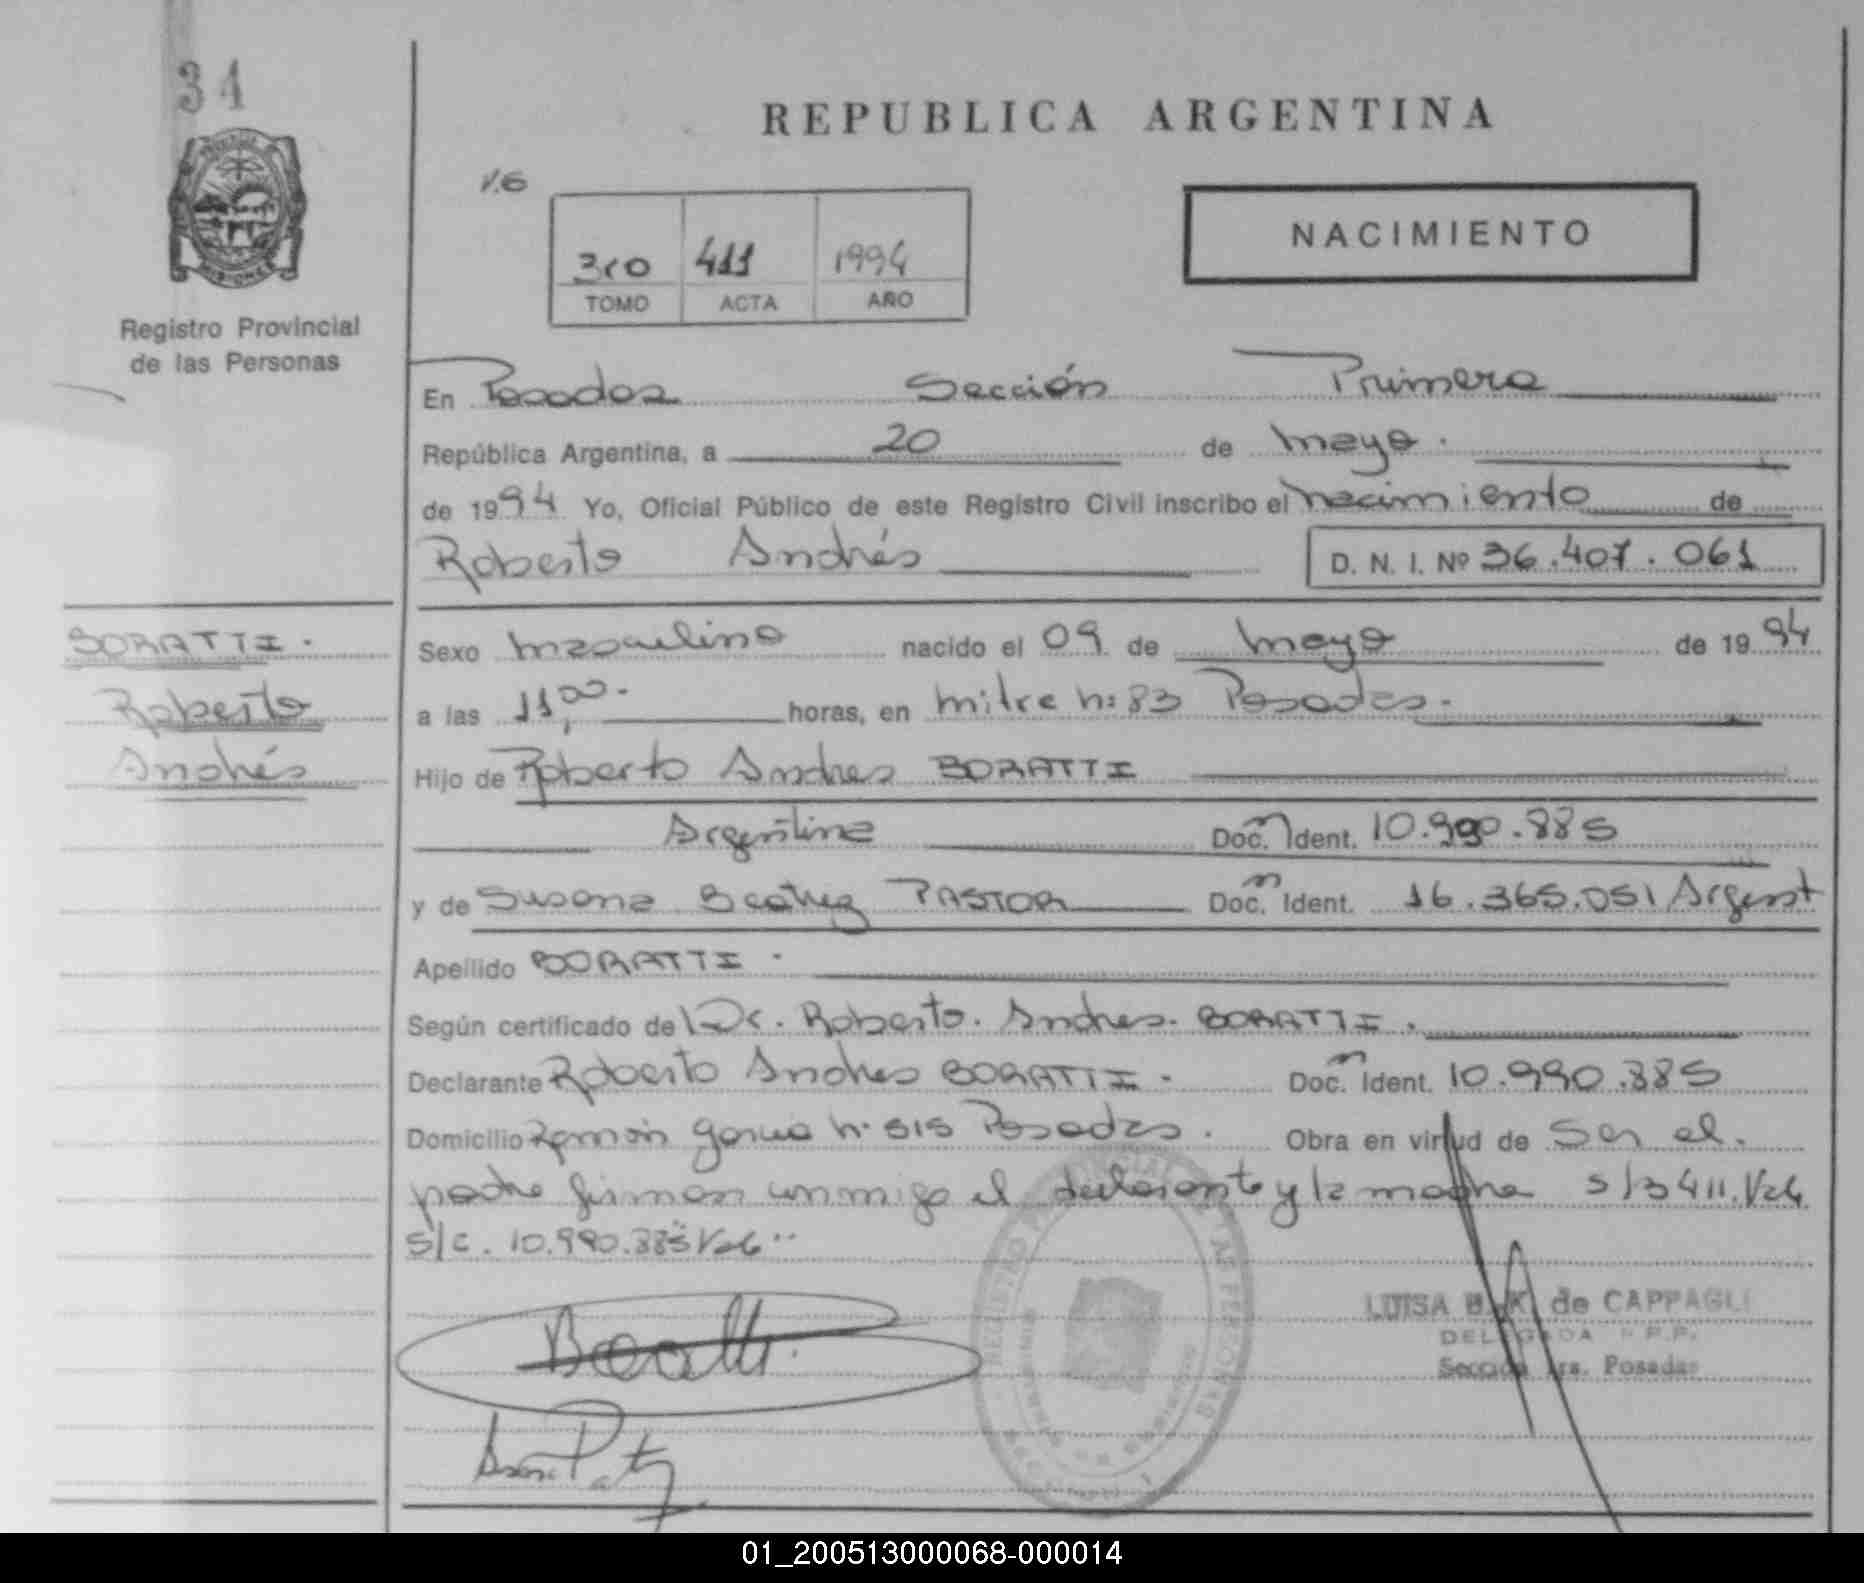 34
REPUBLICA ARGENTINA
V.6
NACIMIENTO
3ro 411 1994
TOMO ACTA AÑO
Registro Provincial
de las Personas
En Posadas Sección Primera
República Argentina, a 20 de mayo.
de 1994 Yo, Oficial Público de este Registro Civil inscribo el nacimiento de
Roberto Andrés D. N. I. Nº 36.407.061
BORATTI.
Roberto
Andrés
Sexo masculino nacido el 09 de mayo de 1994
a las 11,00. horas, en mitre nº 83 Posadas.
Hijo de Roberto Andres BORATTI
Argentina Doc. Ident. 10.990.885
y de Susana Beatriz PASTOR Doc. Ident. 16.365.051 Argent
Apellido BORATTI.
Según certificado de Dr. Roberto. Andres. BORATTI.
Declarante Roberto Andres BORATTI. Doc. Ident. 10.990.885
Domicilio Ramón García nº 515 Posadas. Obra en virtud de Ser el.
padre firman conmigo el declarante y la madre s/b 411. Vale
s/c. 10.990.885 Vale
LUISA B. K. de CAPPAGLI
DELEGADA R.P.P.
Sección 1ra. Posadas
01_200513000068-000014